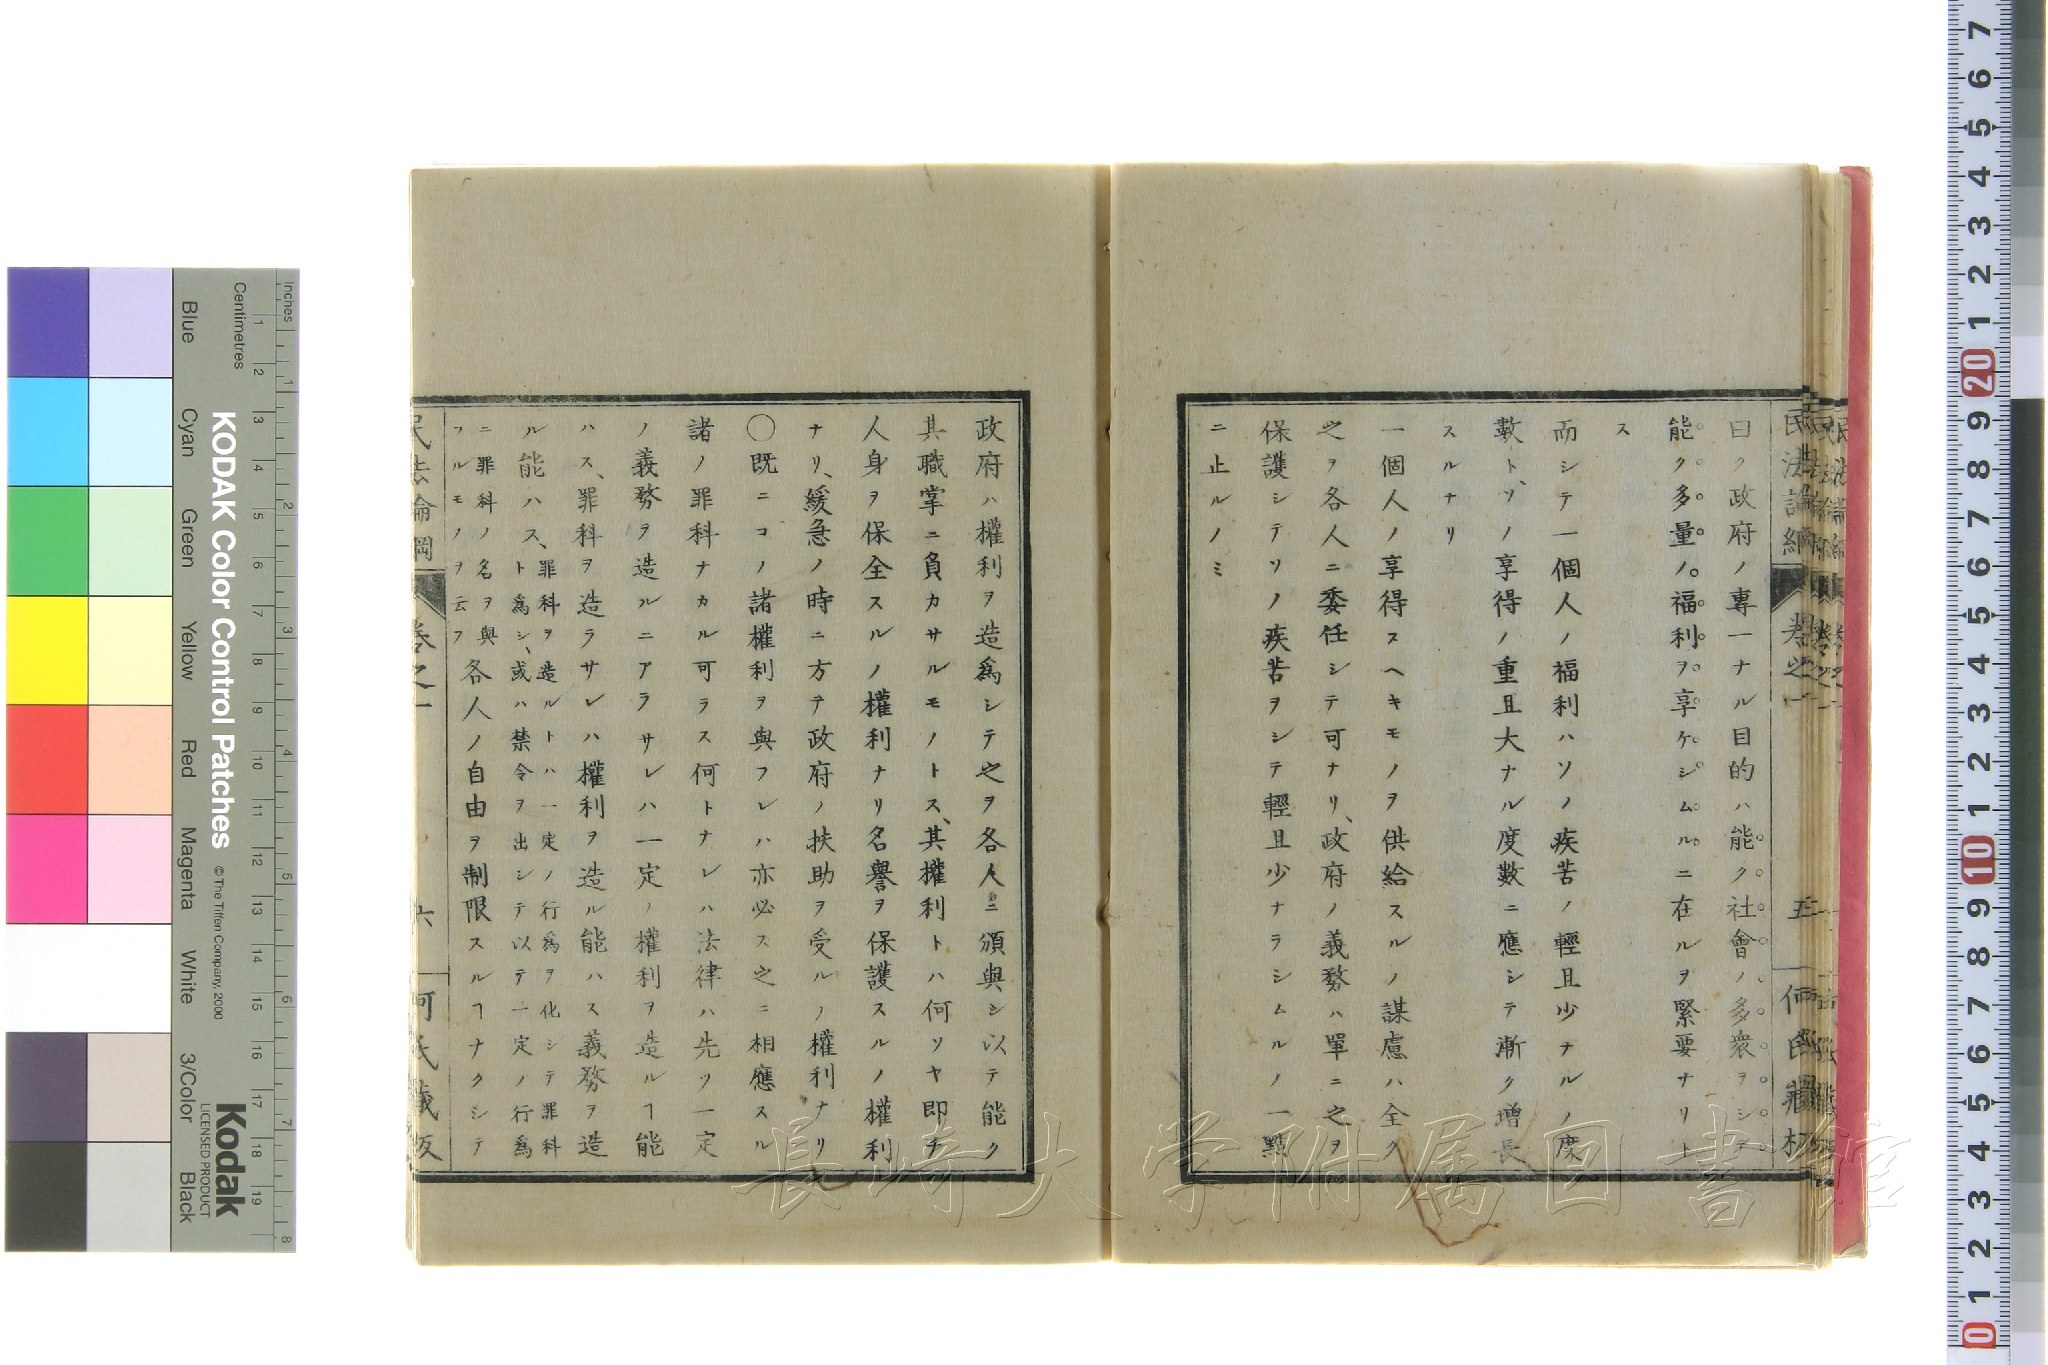 民法論綱
卷之一
五
何氏藏板
曰ク政府ノ專一ナル目的ハ能ク社會ノ多衆ヲシテ
能ク多量ノ福利ヲ享ケシムルニ在ルヲ緊要ナリト
ス
而シテ一個人ノ福利ハソノ疾苦ノ輕且少ナルノ度
數ト、ソノ享得ノ重且大ナル度數ニ應シテ漸ク増長
スルナリ
一個人ノ享得スヘキモノヲ供給スルノ謀慮ハ全ク
之ヲ各人ニ委任シテ可ナリ、政府ノ義務ハ單ニ之ヲ
保護シテソノ疾苦ヲシテ輕且少ナラシムルノ一點
ニ止ルノミ
政府ハ權利ヲ造爲シテ之ヲ各人ニ頒與シ以テ能ク
其職掌ニ負カサルモノトス、其權利トハ何ソヤ即チ
人身ヲ保全スルノ權利ナリ名譽ヲ保護スルノ權利
ナリ、緩急ノ時ニ方テ政府ノ扶助ヲ受ルノ權利ナリ
〇既ニコノ諸權利ヲ與フレハ亦必ス之ニ相應スル
諸ノ罪科ナカル可ラス何トナレハ法律ハ先ツ一定
ノ義務ヲ造ルニアラサレハ一定ノ權利ヲ造ルヿ能
ハス、罪科ヲ造ラサレハ權利ヲ造ル能ハス義務ヲ造
ル能ハス、罪科ヲ造ルトハ一定ノ行爲ヲ化シテ罪科
ト爲シ、或ハ禁令ヲ出シテ以テ一定ノ行爲
ニ罪科ノ名ヲ與
フルモノヲ云フ各人ノ自由ヲ制限スルヿナクシテ
民法論綱
卷之一
六
何氏藏版
長崎大学附属図書館
KODAK Color Control Patches
© The Tiffen Company, 2000
Kodak
LICENSED PRODUCT
Inches
Centimetres
Blue
Cyan
Green
Yellow
Red
Magenta
White
3/Color
Black